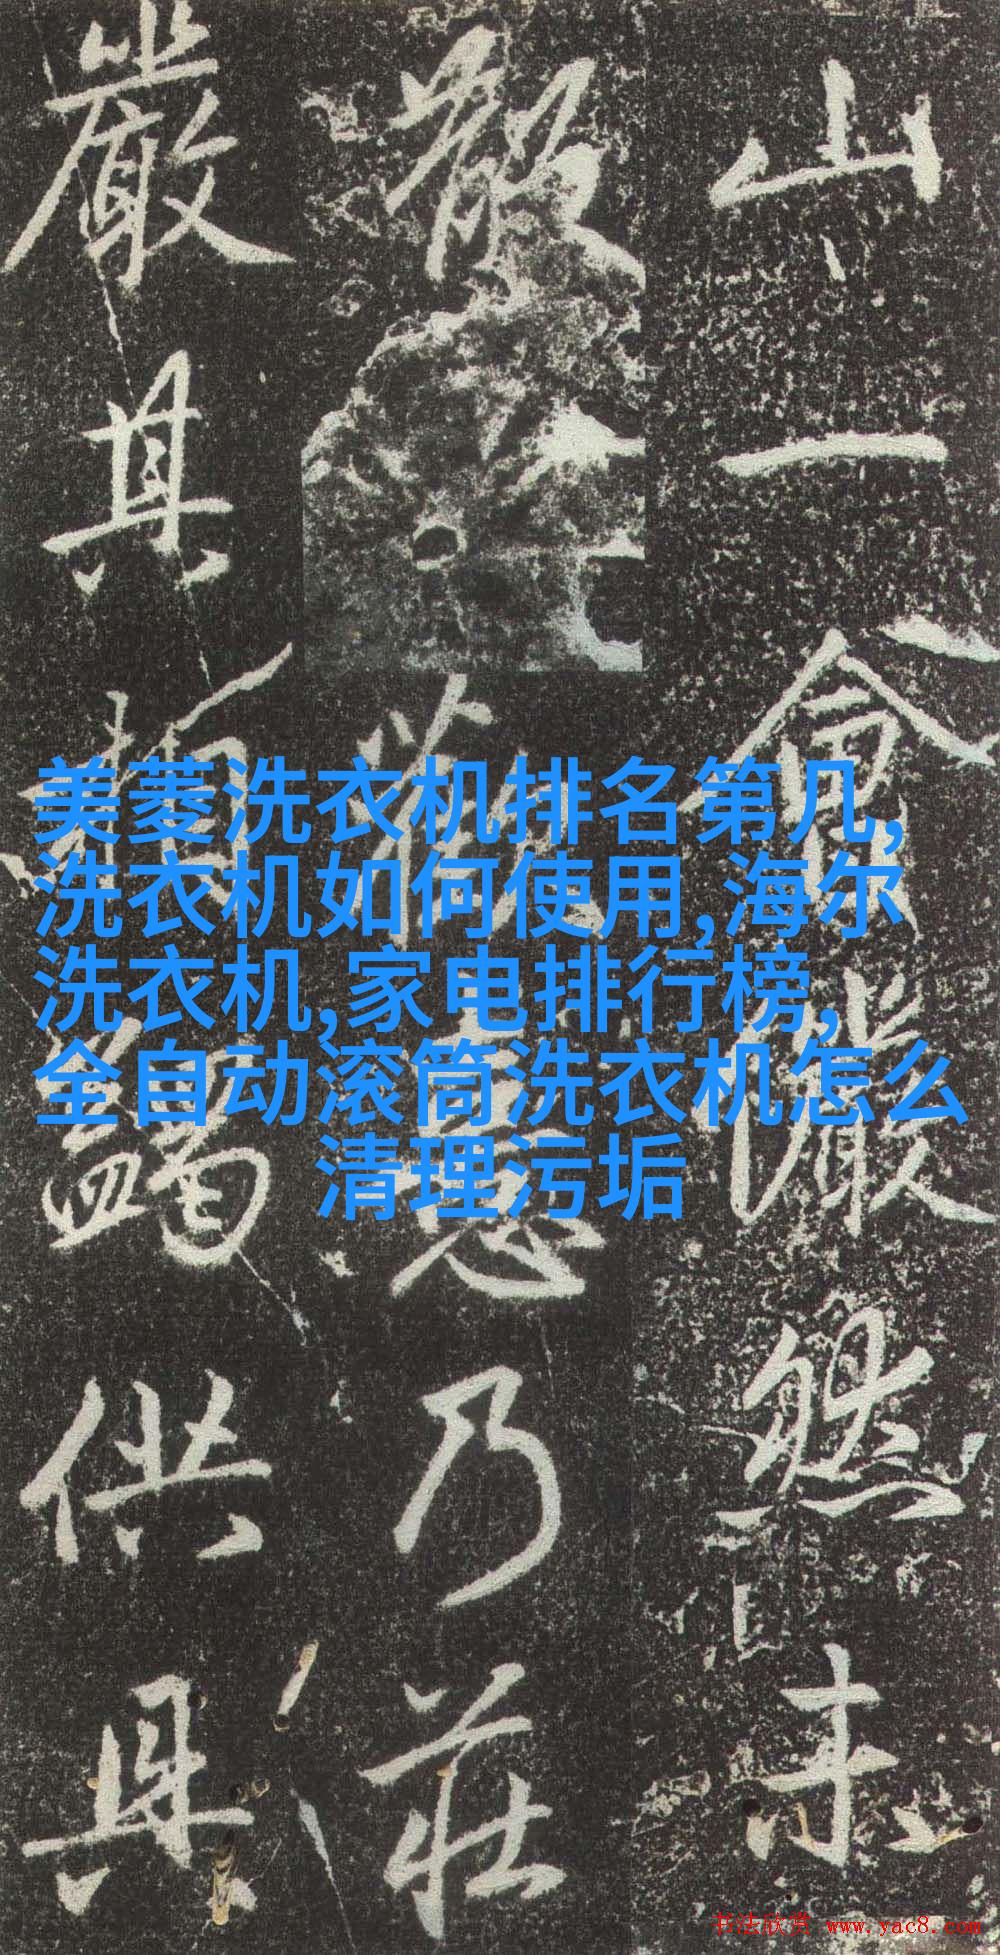 山一會儼然未
觀
乃莊
嚴其
供具
美菱洗衣机排名第几,
洗衣机如何使用,海尔
洗衣机,家电排行榜,
全自动滚筒洗衣机怎么
清理污垢
书法欣赏 www.yac8.com